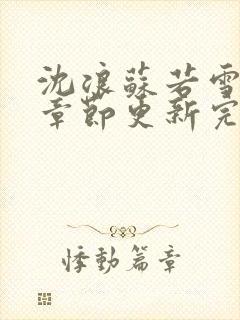 沈浪蘇若雪
章節更新完
悸動篇章